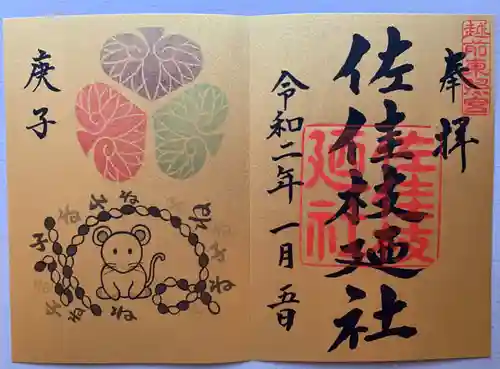 越前東照宮
奉拝
佐佳枝廼社
佐佳枝廼社
令和二年一月五日
庚子
ね
子
ね
ね
子
ね
ね
子
ね